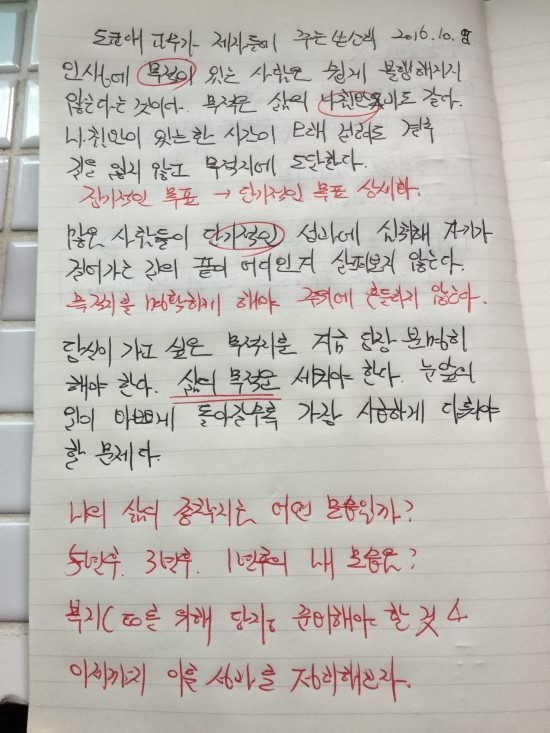 도쿄대 교수가 제자들에 주는 쓴소리 2016.10.
인생에 목적이 있는 사람은 쉽게 불행해지지
않는다는 것이다. 목적은 삶의 나침반과도 같다.
나침반이 있는한 시간이 오래 걸려도 결국
길을 잃지 않고 목적지에 도달한다.
장기적인 목표 → 단기적인 목표 상세화.
많은 사람들이 단기적인 성과에 심취해 자기가
걸어가는 길의 끝이 어디인지 살펴보지 않는다.
목적지를 명확하게 해야 주위에 흔들리지 않는다.
당신이 가고 싶은 목적지를 지금 당장 분명히
해야 한다. 삶의 목적은 세워야 한다. 눈앞의
일이 바쁘게 돌아갈수록 가장 시급하게 다뤄야
할 문제다.
나의 삶의 종착지는 어떤 모습일까?
5년후. 3년후. 1년후의 내 모습은?
복지CEO를 위해 당장 준비해야 할 것
이제까지 이룬 성과를 정리해보자.